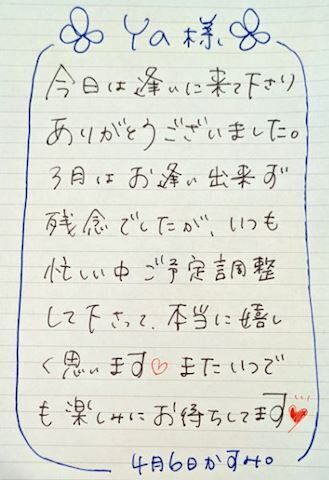 Ya様
今日は逢いに来て下さり
ありがとうございました。
3月はお逢い出来ず
残念でしたが、いつも
忙しい中ご予定調整
して下さって、本当に嬉し
く思います♡またいつで
も楽しみにお待ちしてます♥
4月6日かすみ。